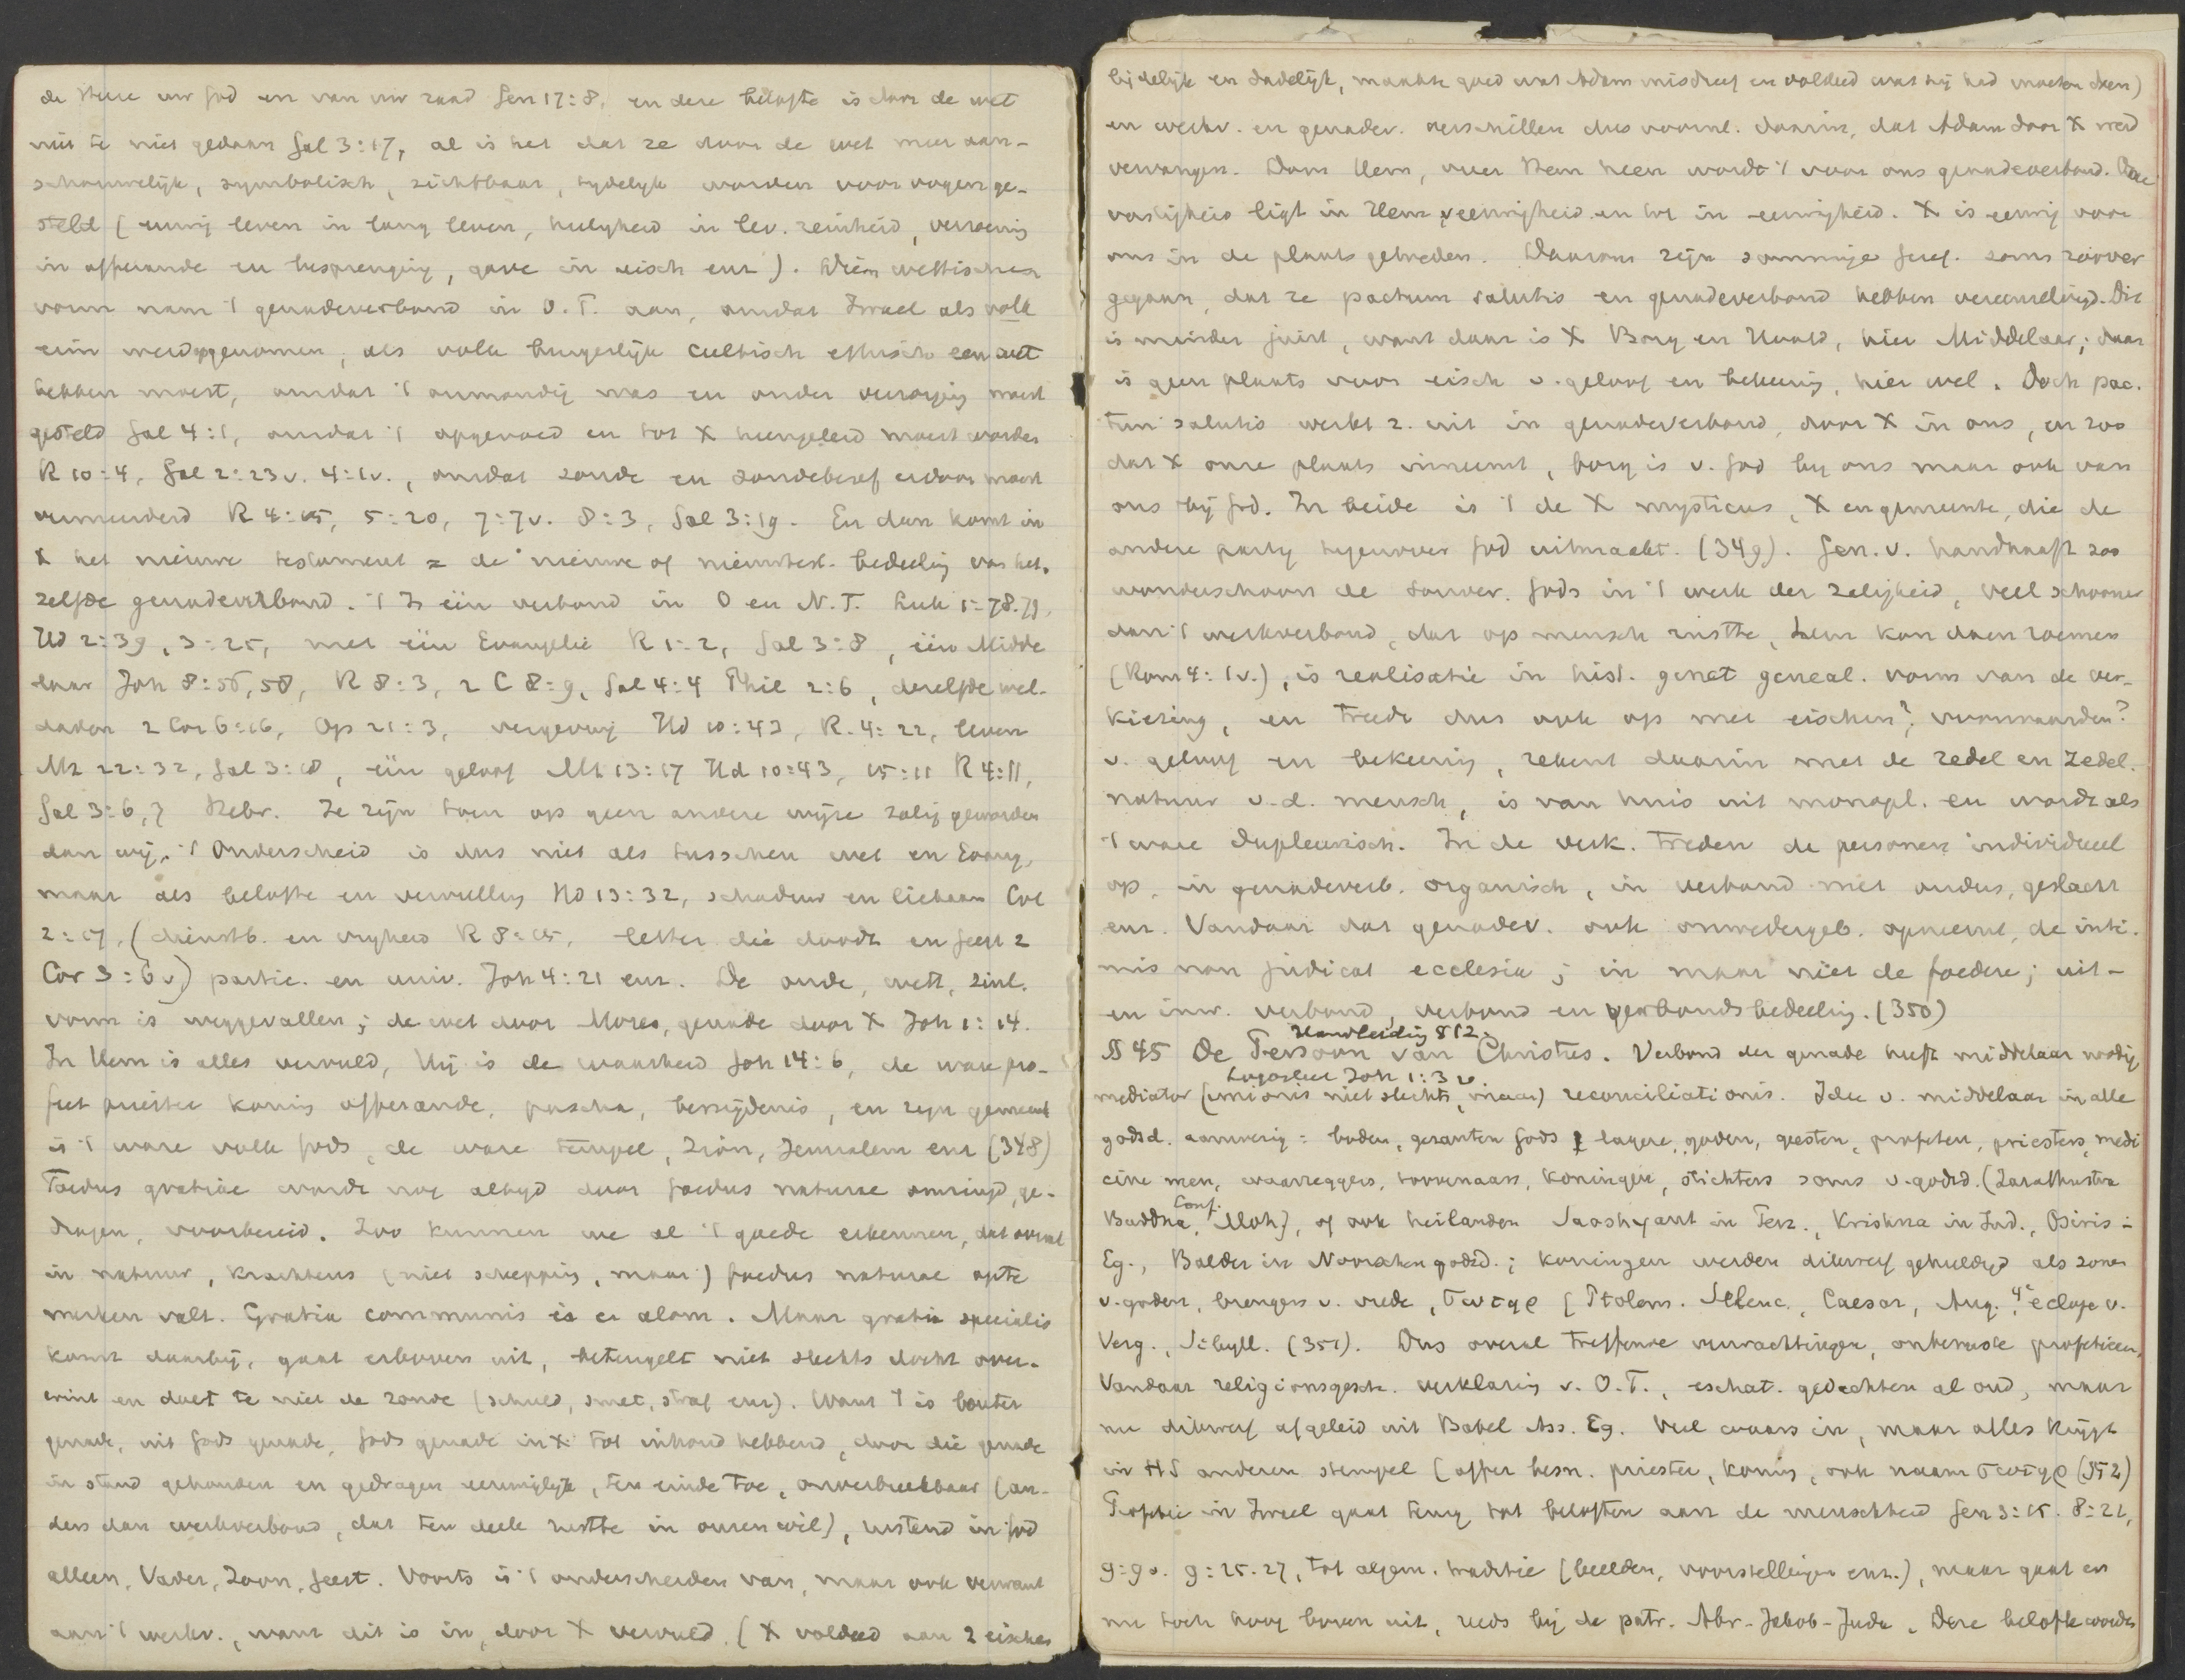 de Heere uw God en van uw zaad Gen 17:8, en deze belofte is door de wet
niet te niet gedaan Gal 3:17, al is het dat ze door de wet meer aan-
schouwelijk, symbolisch, zichtbaar, tydelyk worden voor oogen ge-
steld (eeuwig leven in lang leven, heiligheid in lev. reinheid, verzoening
in offerande en besprenging, gave in eisch enz). Dien wettischen
vorm nam 't genadeverbond in O.T. aan, omdat Israel als volk
erin werd opgenomen, als volk burgerlijk cultisch ethisch een wet
hebben moest, omdat 't onmondig was en onder verzorging moest
gesteld Gal 4:1, omdat 't opgevoed en tot X heengeleid moest worden
R 10:4, Gal 2:23v. 4:1v., omdat zonde en zondebesef erdoor moest
vermeerderd R 4:15, 5:20, 7:7v. 8:3, Gal 3:19. En dan komt in
X het nieuwe testament = de nieuwe of nieuwtest. bedeeling van het-
zelfde genadeverbond. 't Is één verbond in O en N.T. Luk 1:78.79,
Hd 2:39, 3:25, met één Evangelie R 1:2, Gal 3:8, één Midde
laar Joh 8:56,58, R 8:3, 2 C 8:9, Gal 4:4 Phil 2:6, dezelfde wel-
daden 2 Cor 6:16, Op 21:3, vergeving Hd 10:43, R. 4:22, leven
Mt 22:32, Gal 3:18, één geloof Mt 13:17 Hd 10:43, 15:11 R 4:11,
Gal 3:6,7 Hebr. Ze zijn toen op geen andere wijze zalig geworden
dan wij. 't Onderscheid is dus niet als tusschen wet en Evang,
maar als belofte en vervulling Hd 13:32, schaduw en lichaam Col
2:17, (dienstb. en vryheid R 8:15, letter die doodt en Geest 2
Cor 3:6v) partic. en univ. Joh 4:21 enz. De oude, wett, zinl.
vorm is weggevallen; de wet door Mozes, genade door X Joh 1:14.
In Hem is alles vervuld, Hij is de waarheid Joh 14:6, de ware pro-
feet priester koning offerande, pascha, besnijdenis, en zijn gemeent
is 't ware volk Gods, de ware tempel, Zion, Jeruzalem enz (348)
Foedus gratiae wordt nog altyd door foedus naturae omringd, ge-
dragen, voorbereid. Zoo kunnen we al 't goede erkennen, dat overal
in natuur, krachtens (niet schepping, maar) foedus naturae opte
merken valt. Gratia communis is er alom. Maar gratia specialis
komt daarbij, gaat erboven uit, beteugelt niet slechts doch over-
wint en doet te niet de zonde (schuld, smet, straf enz). Want 't is louter
genade, uit Gods genade, Gods genade in X tot inhoud hebbend, door die genade
in stand gehouden en gedragen eeuwiglyk, ten einde toe, onverbreekbaar (an-
ders dan werkverbond, dat ten deele rustte in onzen wil), rustend in God
alleen, Vader, Zoon, Geest. Voorts is 't onderscheiden van, maar ook verwant
aan 't werkv., want dit is in, door X vervuld. (X voldeed aan 2 eischen
lijdelijk en dadelijk, maakte goed wat Adam misdreef en voldeed wat hij had moeten doen)
en werkv. en genadev. verschillen dus voornl. daarin, dat Adam door X werd
vervangen. Door Hem, over Hem heen wordt 't voor ons genadeverbond. De
vastigheid ligt in Hem v eeuwigheid en tot in eeuwigheid. X is eeuwig voor
ons in de plaats getreden. Daarom zijn sommige Geref. soms zoover
gegaan, dat ze pactum salutis en genadeverbond hebben vereenzelvigd. Dit
is minder juist, want daar is X Borg en Hoofd, hier Middelaar; daar
is geen plaats voor eisch v. geloof en bekeering, hier wel. Doch pac-
tum salutis werkt z. uit in genadeverbond, door X in ons, en zoo
dat X onze plaats inneemt, borg is v. God by ons maar ook van
ons bij God. In beide is 't de X mysticus, X en gemeente, die de
andere partij tegenover God uitmaakt. (349). Gen. v. handhaaft zoo
wonderschoon de souver. Gods in 't werk der zaligheid, veel schooner
dan 't werkverbond, dat op mensch rustte, hem kon doen roemen
(Rom 4:1v.), is realisatie in hist. genet geneal. vorm van de ver-
kiezing, en treedt dus ook op met eischen?, voorwaarden?
v. geloof en bekeering, rekent daarin met de redel en zedel.
natuur v.d. mensch, is van huis uit monopl. en wordt als
't ware dupleurisch. In de verk. treden de personen individueel
op, in genadeverb. organisch, in verband met ouders, geslacht
enz. Vandaar dat genadev. ook onwedergeb. opneemt, de inti-
mis non judicat ecclesia; in maar niet de foedere; uit-
en inw. verbond, verbond en verbondsbedeeling. (350)
Handleiding § 12.
§ 45 De Persoon van Christus. Verbond der genade heeft middelaar nodig
Logosleer Joh 1:3 v
mediator (unionis niet slechts, maar) reconciliationis. Idee v. middelaar in alle
godsd. aanwezig: boden, gezanten Gods, lagere goden, geesten, profeten, priesters, medi
cine men, waarzeggers, toovenaars, koningen, stichters soms v. godsd. (Zarathustra
Conf.
Buddha, Moh), of ook heilanden Saoshyant in Perz., Krishna in Ind., Osiris in
Eg., Balder in Noorschen godsd.; koningen werden dikwerf gehuldigd als zonen
v. goden, brengers v. vrede, σωτηρ (Ptolem. Seleuc., Caesar, Aug. 4e ecloge v.
Verg., Sibyll. (351). Dus overal treffende verwachtingen, onbewuste profetieën,
Vandaar religionsgesch. verklaring v. O.T., eschat. gedachten al oud, maar
nu dikwerf afgeleid uit Babel Ass. Eg. Veel waars in, maar alles krijgt
in HS anderen stempel (offer besn. priester, koning, ook naam σωτηρ (352)
Profetie in Israel gaat terug tot beloften aan de menschheid Gen 3:15. 8:21,
9:9v. 9:25.27, tot algem. traditie (beelden, voorstellingen enz.), maar gaat er
nu toch hoog boven uit, reeds bij de patr. Abr-Jakob-Juda. Deze belofte worden